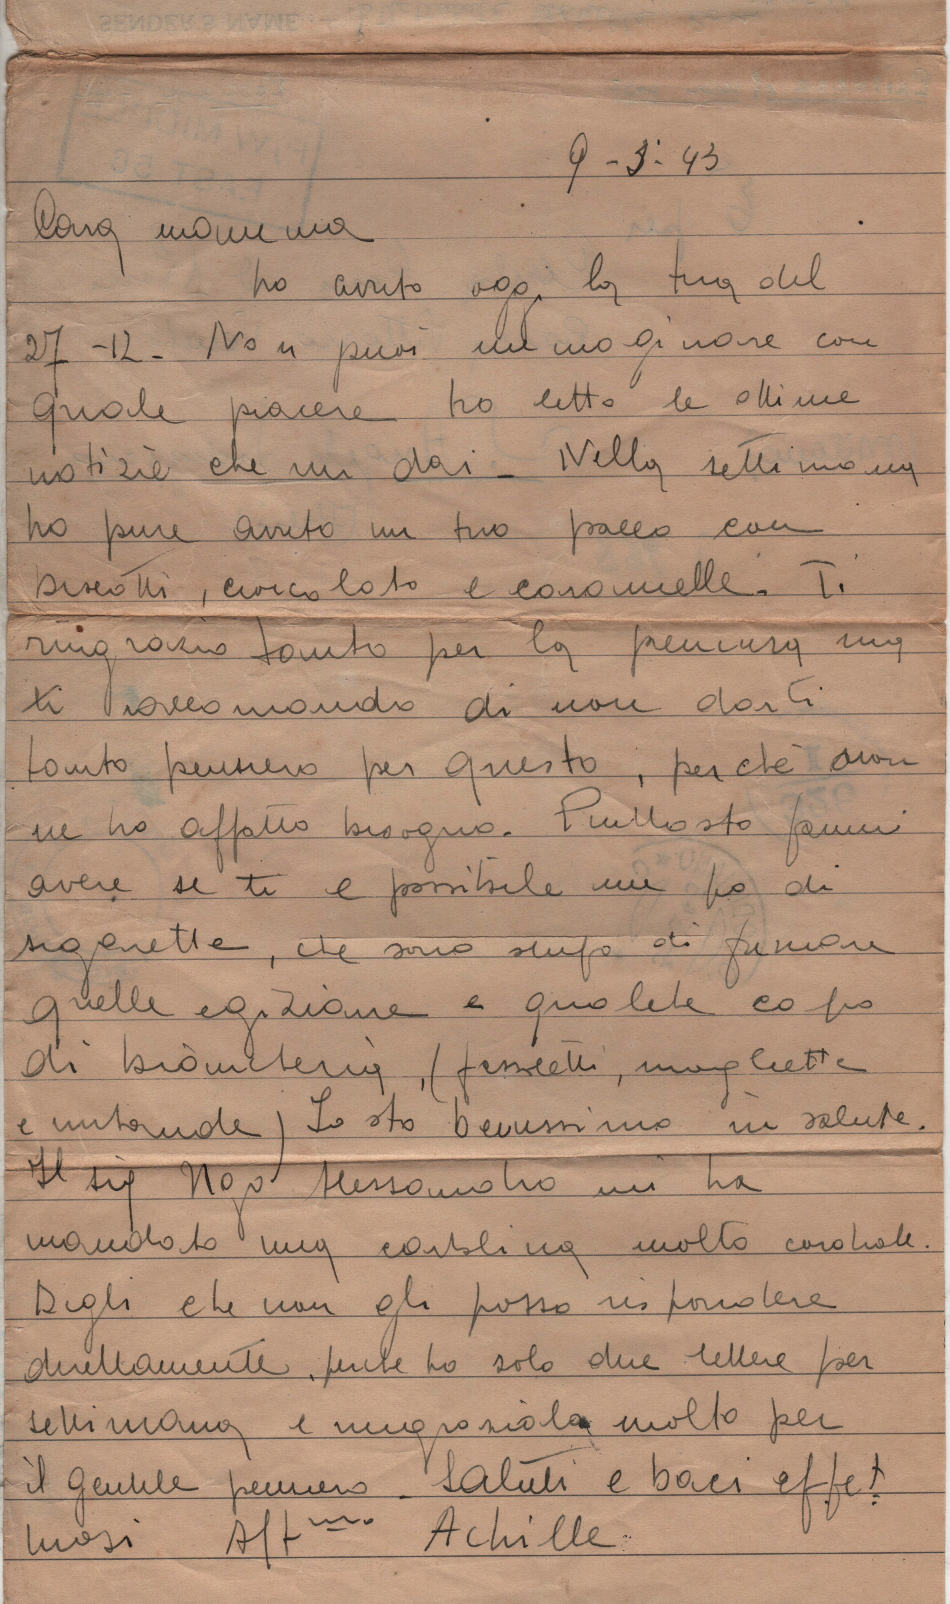 9-3-43
Cara mamma
ho avuto oggi la tua del
27-12- Non puoi immaginare con
quale piacere ho letto le ottime
notizie che mi dai - Nella settimana
ho pure avuto un tuo pacco con
biscotti, cioccolato e caramelle. Ti
ringrazio tanto per la premura ma
ti raccomando di non darti
tanto pensiero per questo, perchè non
ne ho affatto bisogno. Piuttosto fammi
avere se ti è possibile un po di
sigarette, che sono stufo di fumare
quelle egiziane e qualche capo
di biancheria, (fazzoletti, magliette
e mutande) Io sto benissimo in salute.
Il sig Alessandro mi ha
mandato una cartolina molto cordiale.
Digli che non gli posso rispondere
direttamente, perche ho solo due lettere per
settimana e ringraziala molto per
il gentile pensiero - Saluti e baci effet
tuosi Aff.mo Achille
SENDER'S NAME